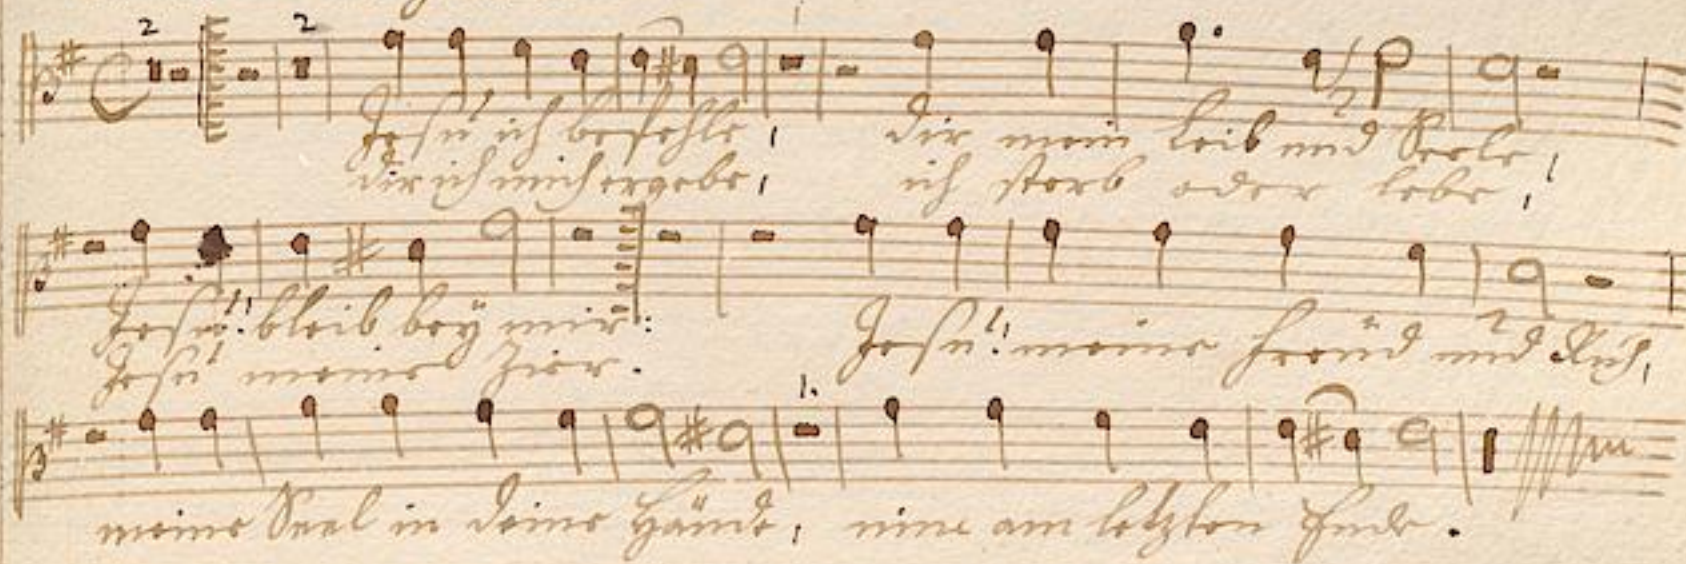 2 2
Jesu ich befehle,  dir mein Leib und Seele,
dir ich mich ergebe,  ich sterb oder lebe,
Jesu! bleib bey mir:  Jesu! meine Freud und Ruh,
Jesu meine Zier.
1.
meine Seel in deine Hände, nim am letzten Ende.